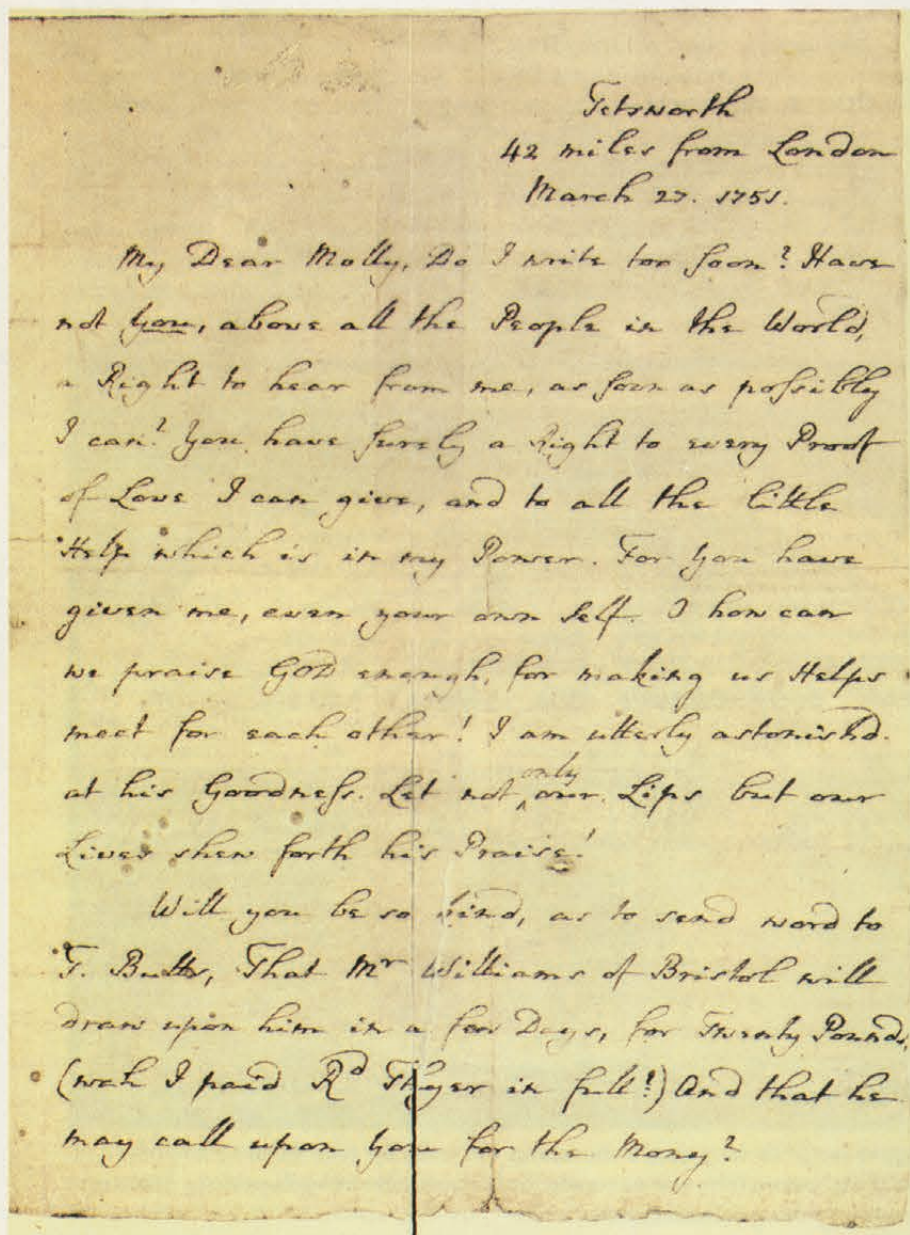 Tetsworth
42 miles from London
March 27. 1751.
My Dear Molly, Do I write too soon? Have
not you, above all the People in the World,
a Right to hear from me, as soon as possibly
I can? You have surely a Right to every Proof
of Love I can give, and to all the little
Help which is in my Power. For you have
given me, even your own self. O how can
we praise GOD enough, for making us Helps
meet for each other! I am utterly astonish'd
at his Goodness. Let not only our Lips but our
Lives shew forth his Praise!
Will you be so kind, as to send word to
T. Butts, That Mr Williams of Bristol will
draw upon him in a few Days, for Twenty Pounds,
(wch I paid Rd Thyer in full?) And that he
may call upon you for the Money?